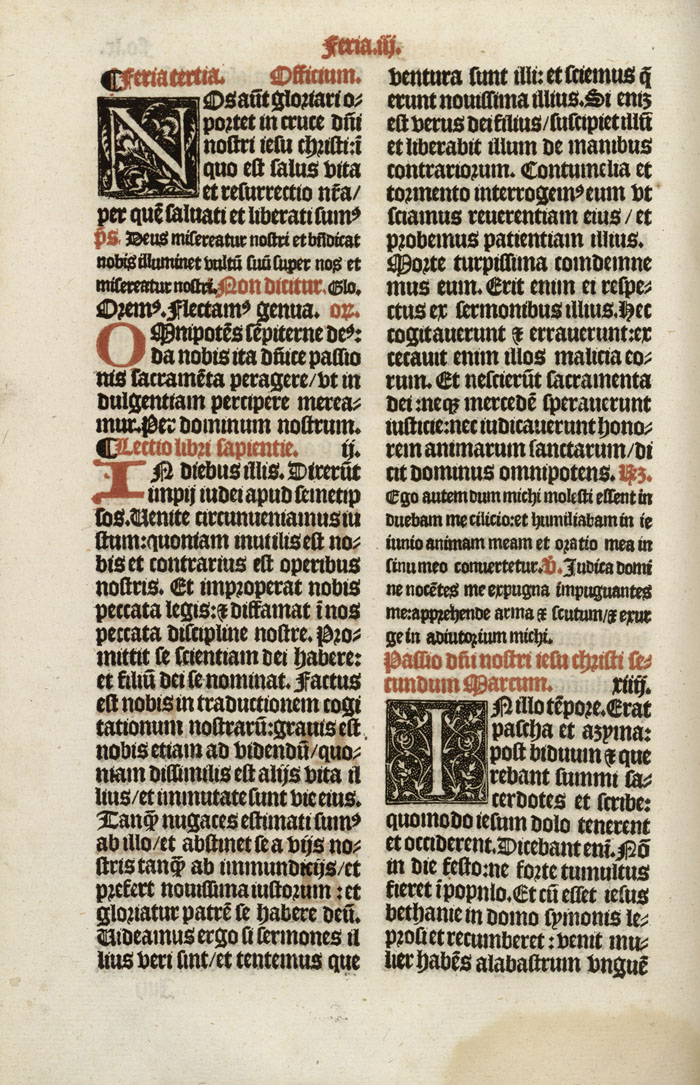 Feria.iij.
¶Feria tertia. Officium.
NOs aūt gloriari o⸗
portet in cruce dn̄i
nostri iesu christi:ī
quo est salus vita
et resurrectio nr̄a/
per quē saluati et liberati sumꝰ
p̄s. Deus misereatur nostri et bn̄dicat
nobis illuminet vultū suū super nos et
misereatur nostri. Non dicitur. Glo.
Oremꝰ. Flectamꝰ genua. or.
OMnipotēs sēpiterne deꝰ:
da nobis ita dn̄ice passio
nis sacramēta peragere/vt in
dulgentiam percipere merea⸗
mur. Per dominum nostrum.
¶Lectio libri sapientie. ij.
IN diebus illis. Dixerūt
impij iudei apud semetip
sos. Uenite circumueniamus iu
stum: quoniam inutilis est no⸗
bis et contrarius est operibus
nostris. Et improperat nobis
peccata legis: ⁊ diffamat ī nos
peccata discipline nostre. Pro⸗
mittit se scientiam dei habere:
et filiū dei se nominat. Factus
est nobis in traductionem cogi
tationum nostrarū: grauis est
nobis etiam ad videndū/quo⸗
niam dissimilis est alijs vita il
lius/et immutate sunt vie eius.
Tanq̄ nugaces estimati sumꝰ
ab illo/et abstinet se a vijs no⸗
stris tanq̄ ab immundicijs/et
prefert nouissima iustorum : et
gloriatur patrē se habere deū.
Uideamus ergo si sermones il
lius veri sint/et tentemus que
ventura sunt illi: et sciemus q̄
erunt nouissima illius. Si eniꝫ
est verus dei filius/suscipiet illū
et liberabit illum de manibus
contrariorum. Contumelia et
tormento interrogemꝰ eum vt
sciamus reuerentiam eius / et
probemus patientiam illius.
Morte turpissima comdemne
mus eum. Erit enim ei respe⸗
ctus ex sermonibus illius. Hec
cogitauerunt ⁊ errauerunt: ex
cecauit enim illos malicia eo⸗
rum. Et nescierūt sacramenta
dei : neqꝫ mercedē sperauerunt
iusticie: nec iudicauerunt hono⸗
rem animarum sanctarum/di
cit dominus omnipotens. ꝶ.
Ego autem dum michi molesti essent in
duebam me cilicio: et humiliabam in ie
iunio animam meam et oratio mea in
sinu meo conuertetur. ℣. Judica domi
ne nocētes me expugna impugnantes
me: apprehende arma ⁊ scutum/⁊ exur
ge in adiutorium michi.
Passio dn̄i nostri iesu christi se⸗
cundum Marcum. xiiij.
IN illo tēpore. Erat
pascha et azyma:
post biduum ⁊ que
rebant summi sa⸗
cerdotes et scribe:
quomodo iesum dolo tenerent
et occiderent. Dicebant enī. Nō
in die festo: ne forte tumultus
fieret ī popnlo. Et cū esset iesus
bethanie in domo symonis le⸗
prosi et recumberet : venit mu⸗
lier habēs alabastrum vnguē